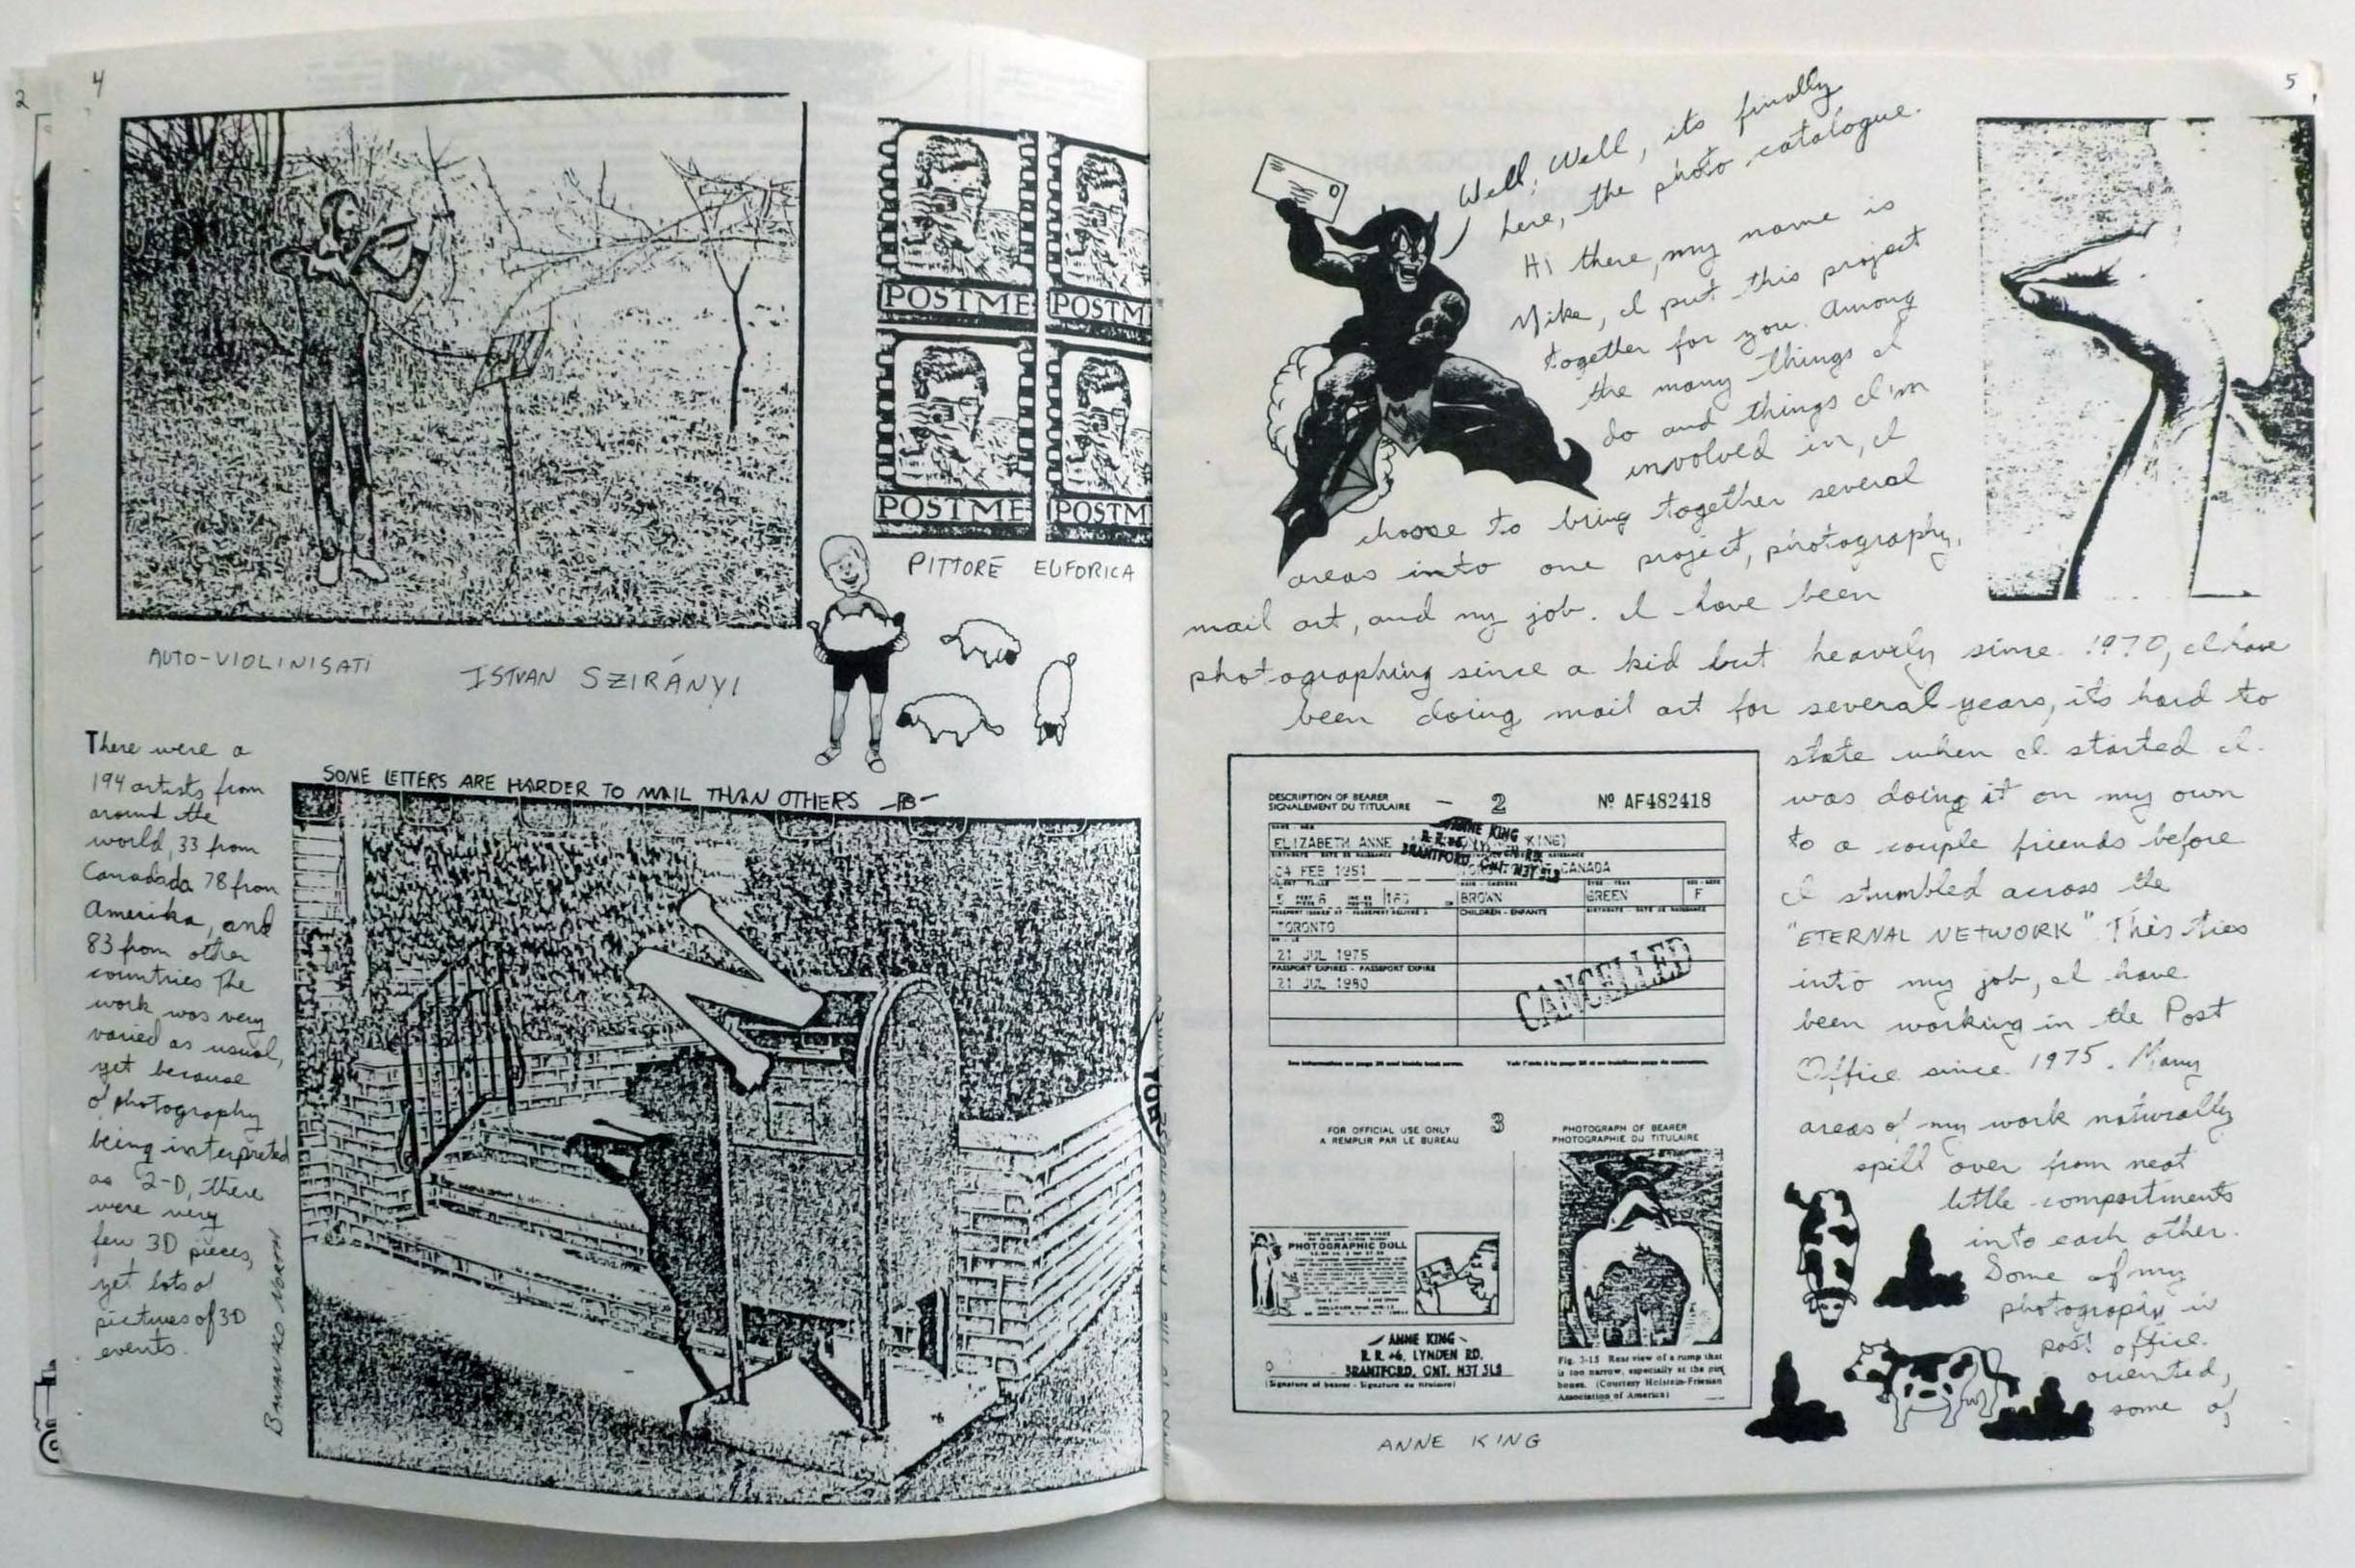 2
4
POSTME
POSTM
POSTME
POSTM
PITTORE EUFORICA
AUTO-VIOLINISATI
ISTVAN SZIRÁNYI
There were a
194 artists from
around the
world, 33 from
Canadada 78 from
Amerika, and
83 from other
countries The
work was very
varied as usual,
yet because
of photography
being interpreted
as 2-D, there
were very
few 3D pieces,
yet lots of
pictures of 3D
events.
SOME LETTERS ARE HARDER TO MAIL THAN OTHERS
5
Well, Well, its finally
here, the photo catalogue.
Hi there, my name is
Mike, I put this project
together for you. Among
the many things I
do and things I'm
involved in, I
choose to bring together several
areas into one project, photography,
mail art, and my job. I have been
photographing since a kid but heavily since 1970, I have
been doing mail art for several years, its hard to
state when I started I
was doing it on my own
to a couple friends before
I stumbled across the
"ETERNAL NETWORK". This ties
into my job, I have
been working in the Post
Office since 1975. Many
areas of my work naturally
spill over from neat
little compartments
into each other.
Some of my
photography is
post office
oriented,
some of
DESCRIPTION OF BEARER
SIGNALEMENT DU TITULAIRE
- 2
Nº AF482418
ELIZABETH ANNE KING)
ANNE KING
04 FEB 1951 CANADA
BROWN GREEN F
CHILDREN - ENFANTS
TORONTO
21 JUL 1975
PASSPORT EXPIRES - PASSEPORT EXPIRE
21 JUL 1980
CANCELLED
See information on page 26 and inside back cover.
3
FOR OFFICIAL USE ONLY
A REMPLIR PAR LE BUREAU
PHOTOGRAPH OF BEARER
PHOTOGRAPHIE DU TITULAIRE
PHOTOGRAPHIC DOLL
ANNE KING
R. R. #6, LYNDEN RD.
BRANTFORD, ONT. N3T 5L8
(Signature of bearer - Signature du titulaire)
Fig. 3-15 Rear view of a rump that
is too narrow, especially at the pin
bones. (Courtesy Holstein-Friesian
Association of America)
ANNE KING